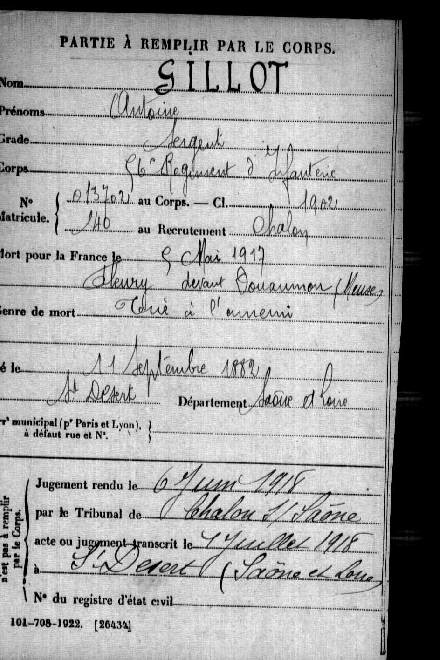 PARTIE À REMPLIR PAR LE CORPS.
GILLOT
Nom
Prénoms Antoine
Grade Sergent
Corps 56e Régiment d'Infanterie
N° 013702 au Corps. — Cl. 1902
Matricule. 140 au Recrutement Chalon
Mort pour la France le 5 Mai 1917
Fleury devant Douaumon (Meuse)
Genre de mort Tué à l'ennemi
é le 11 Septembre 1882
St Desert Département Saône et Loire
rr municipal (pr Paris et Lyon),
à défaut rue et N°.
n'est pas à remplir
par le Corps.
Jugement rendu le 6 Juin 1918
par le Tribunal de Chalon S/ Saône
acte ou jugement transcrit le 1 Juillet 1918
à St Desert (Saône et Loire
N° du registre d'état civil
101-708-1922. [26434]